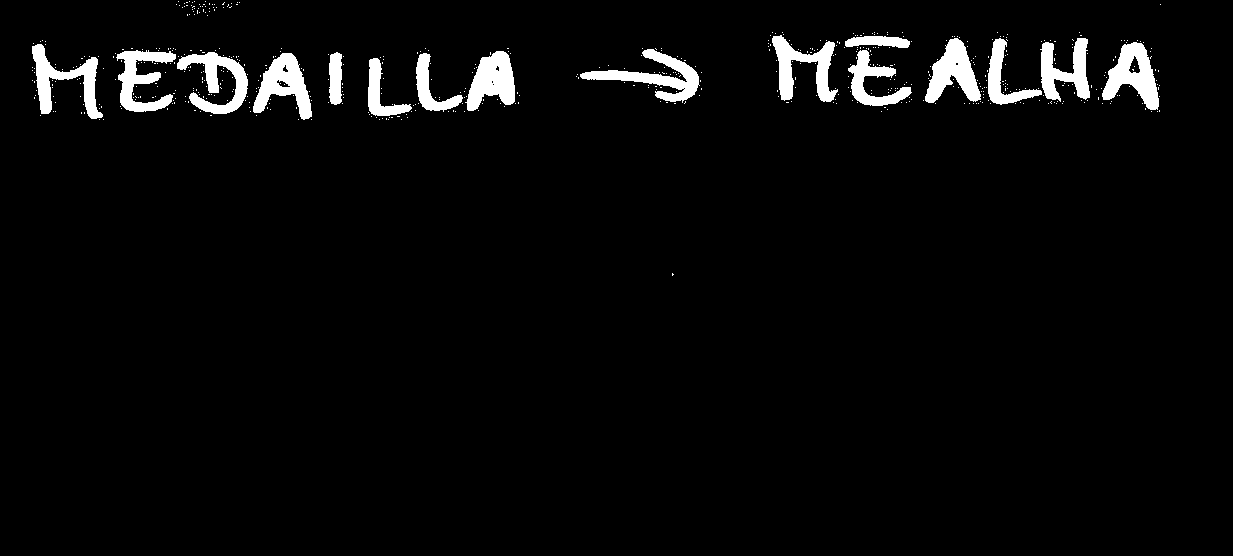 MEDAILLA → MEALHA